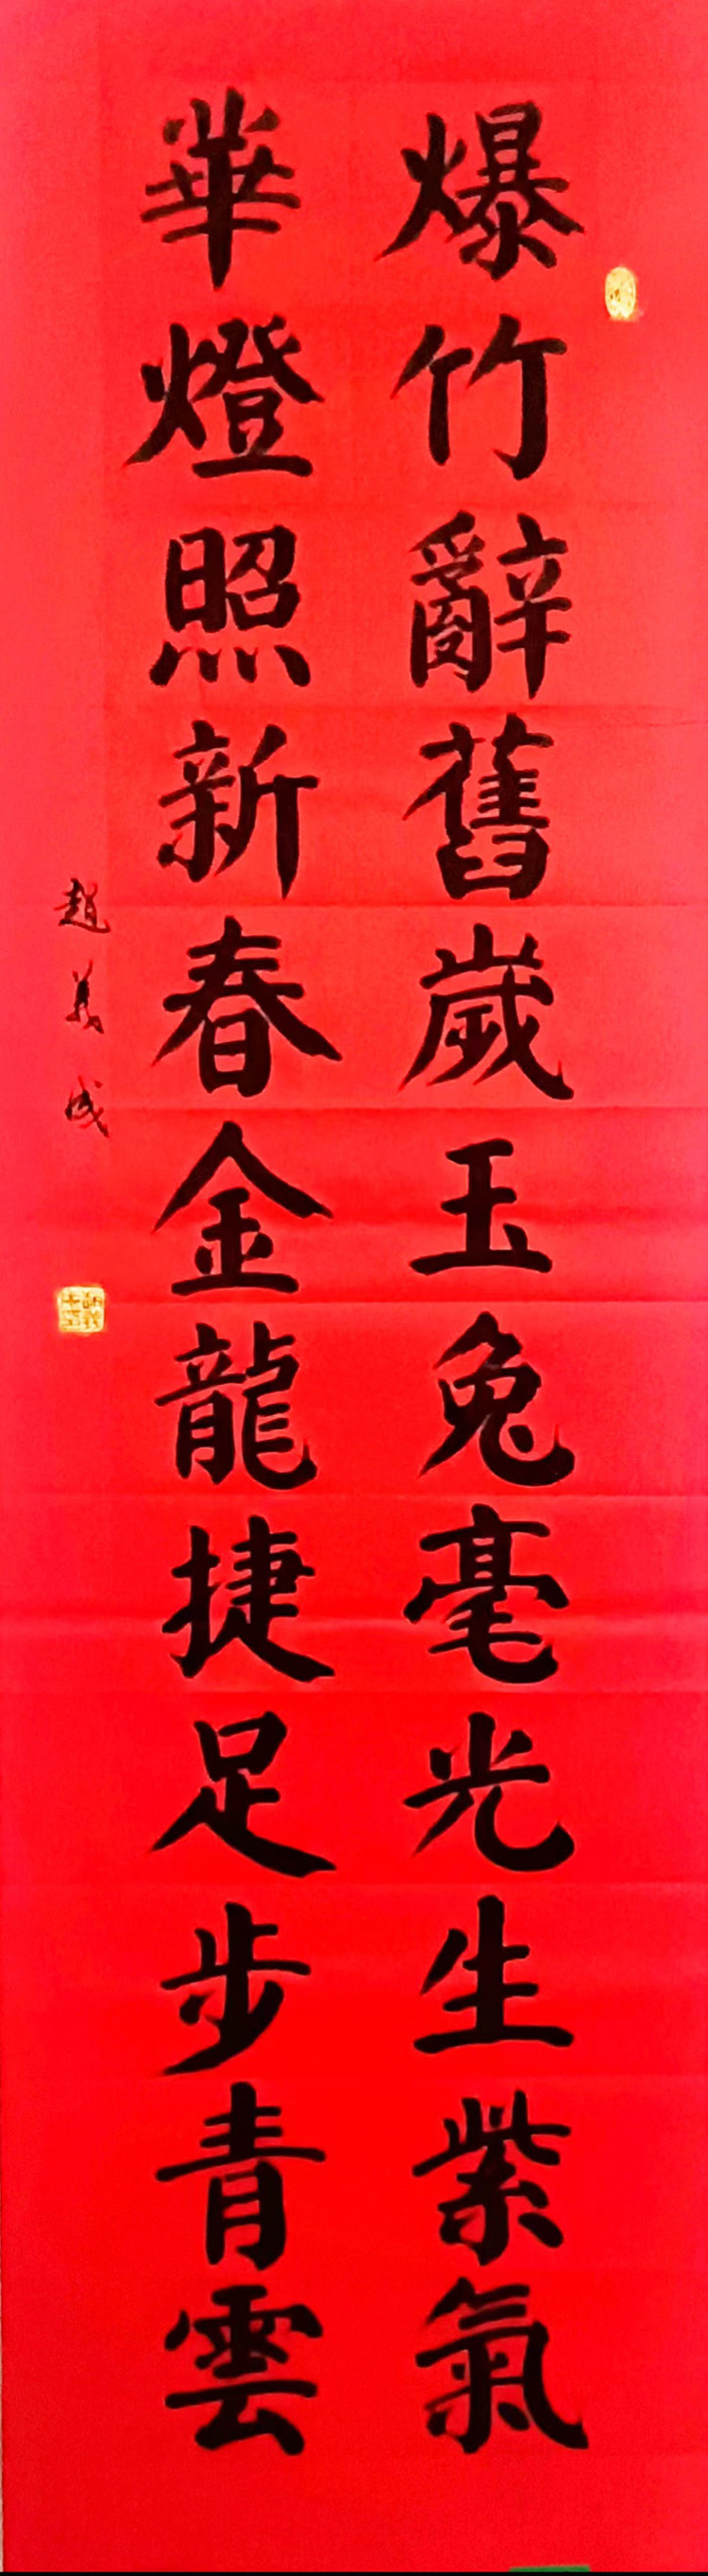 爆竹辭舊歲玉兔毫光生紫氣
華燈照新春金龍捷足步青雲
趙義成